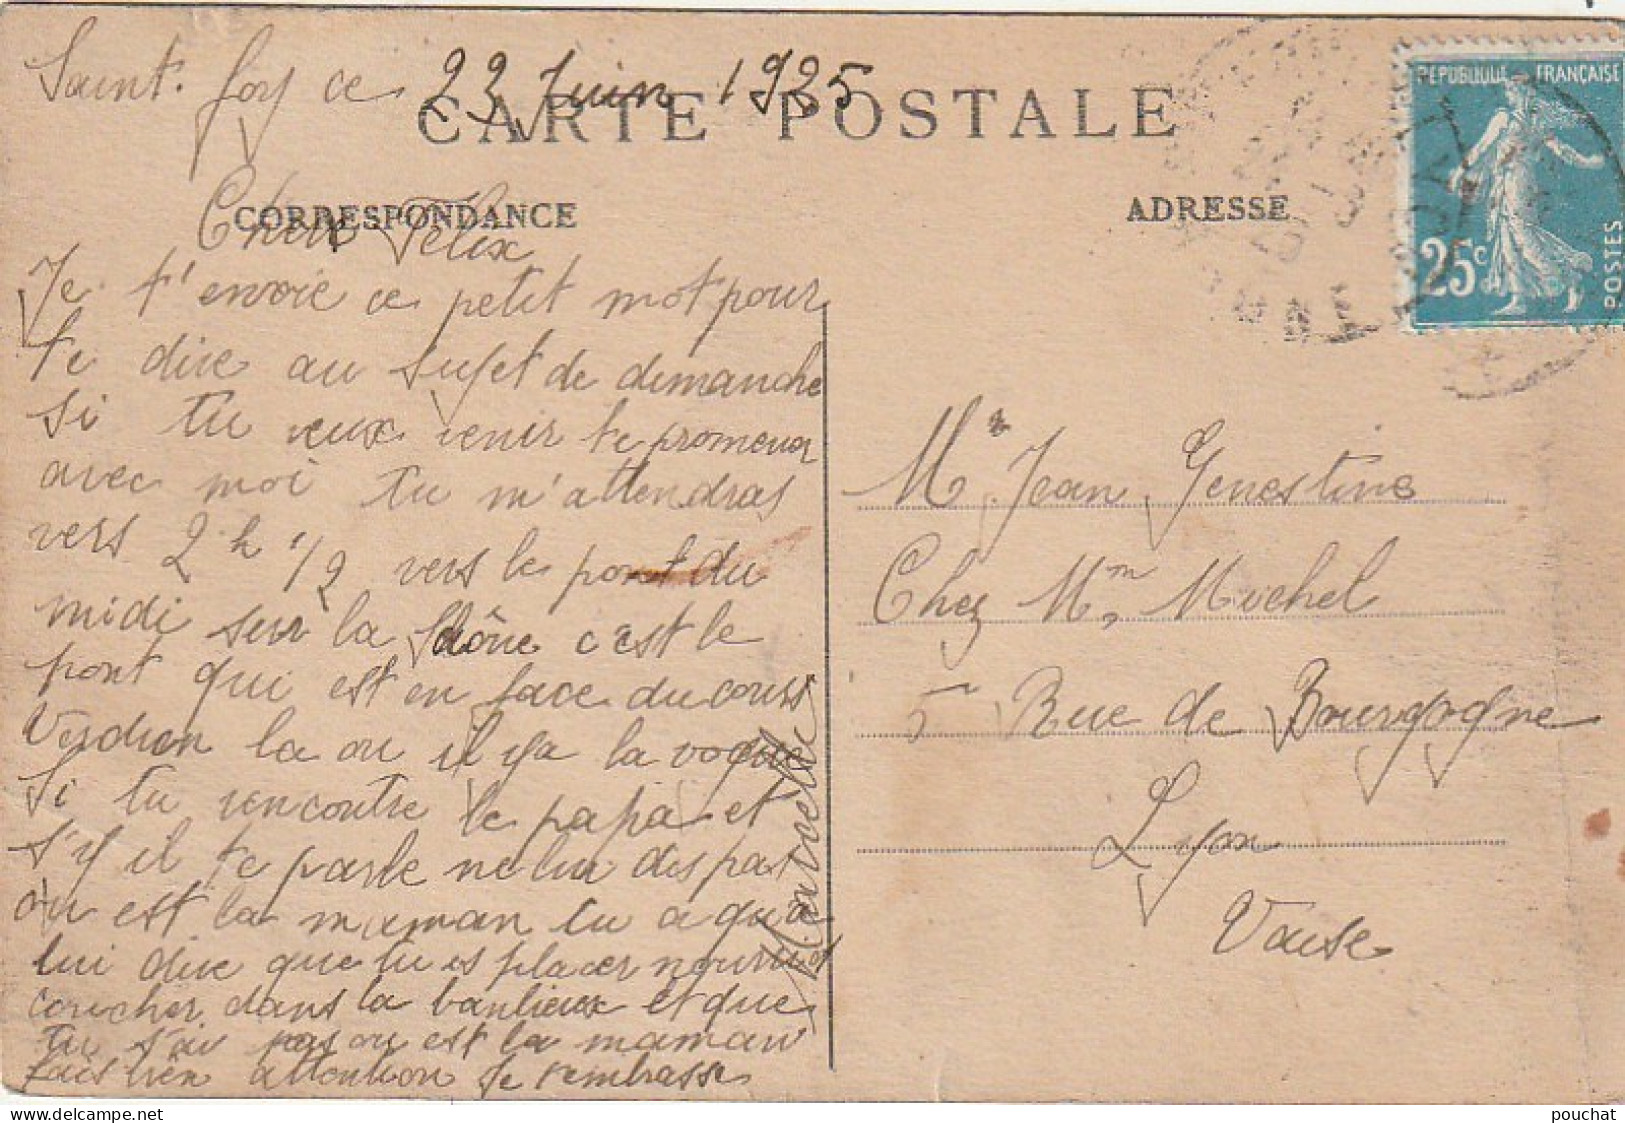 Saint. foy ce 22 Juin 1925
CARTE POSTALE
CORRESPONDANCE
ADRESSE
REPUBLIQUE FRANÇAISE
25c
POSTES
Cher Félix
Je t'envoie ce petit mot pour
te dire au sujet de dimanche
si tu veux venir te promener
avec moi tu m'attendras
vers 2 h 1/2 vers le pont du
midi sur la Saône c'est le
pont qui est en face du cours
Verdun la ou il ya la vogue
Si tu rencontre le papa et
s'y il te parle ne lui dis pas
ou est la maman tu a qu'a
lui dire que tu es placer nourri et
coucher dans la banlieux et que
tu s'ai pas ou est la maman
fais bien attention Je t'embrasse
Marcelle
Mr Jean Genestine
Chez Mm Michel
5 Rue de Bourgogne
Lyon
Vaise
pouchat